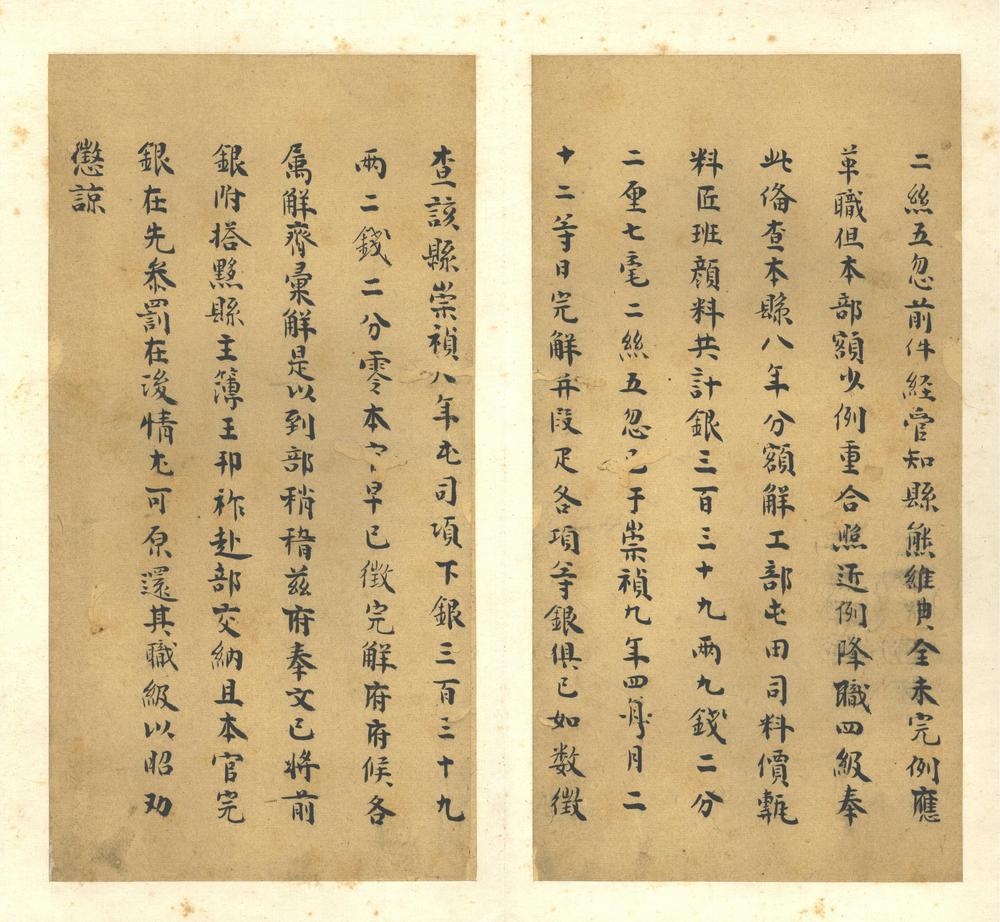 二絲五忽前件経管知縣熊維典全未完例應
革職但本部額少例重合照近例降職四級奉
此俻查本縣八年分額解工部屯田司料價甎
料匠班顔料共計銀三百三十九兩九錢二分
二厘七毫二絲五忽已于崇禎九年四月二
十二等日完解并段疋各項等銀俱已如数徵
查該縣崇禎八年屯司項下銀三百三十九
兩二錢二分零本早已徵完解府府候各
属解齊彙解是以到部稍稽兹府奉文已將前
銀附搭黟縣主簿王祚赴部交納且本官完
銀在先叅罰在後情尤可原還其職級以昭劝
懲諒